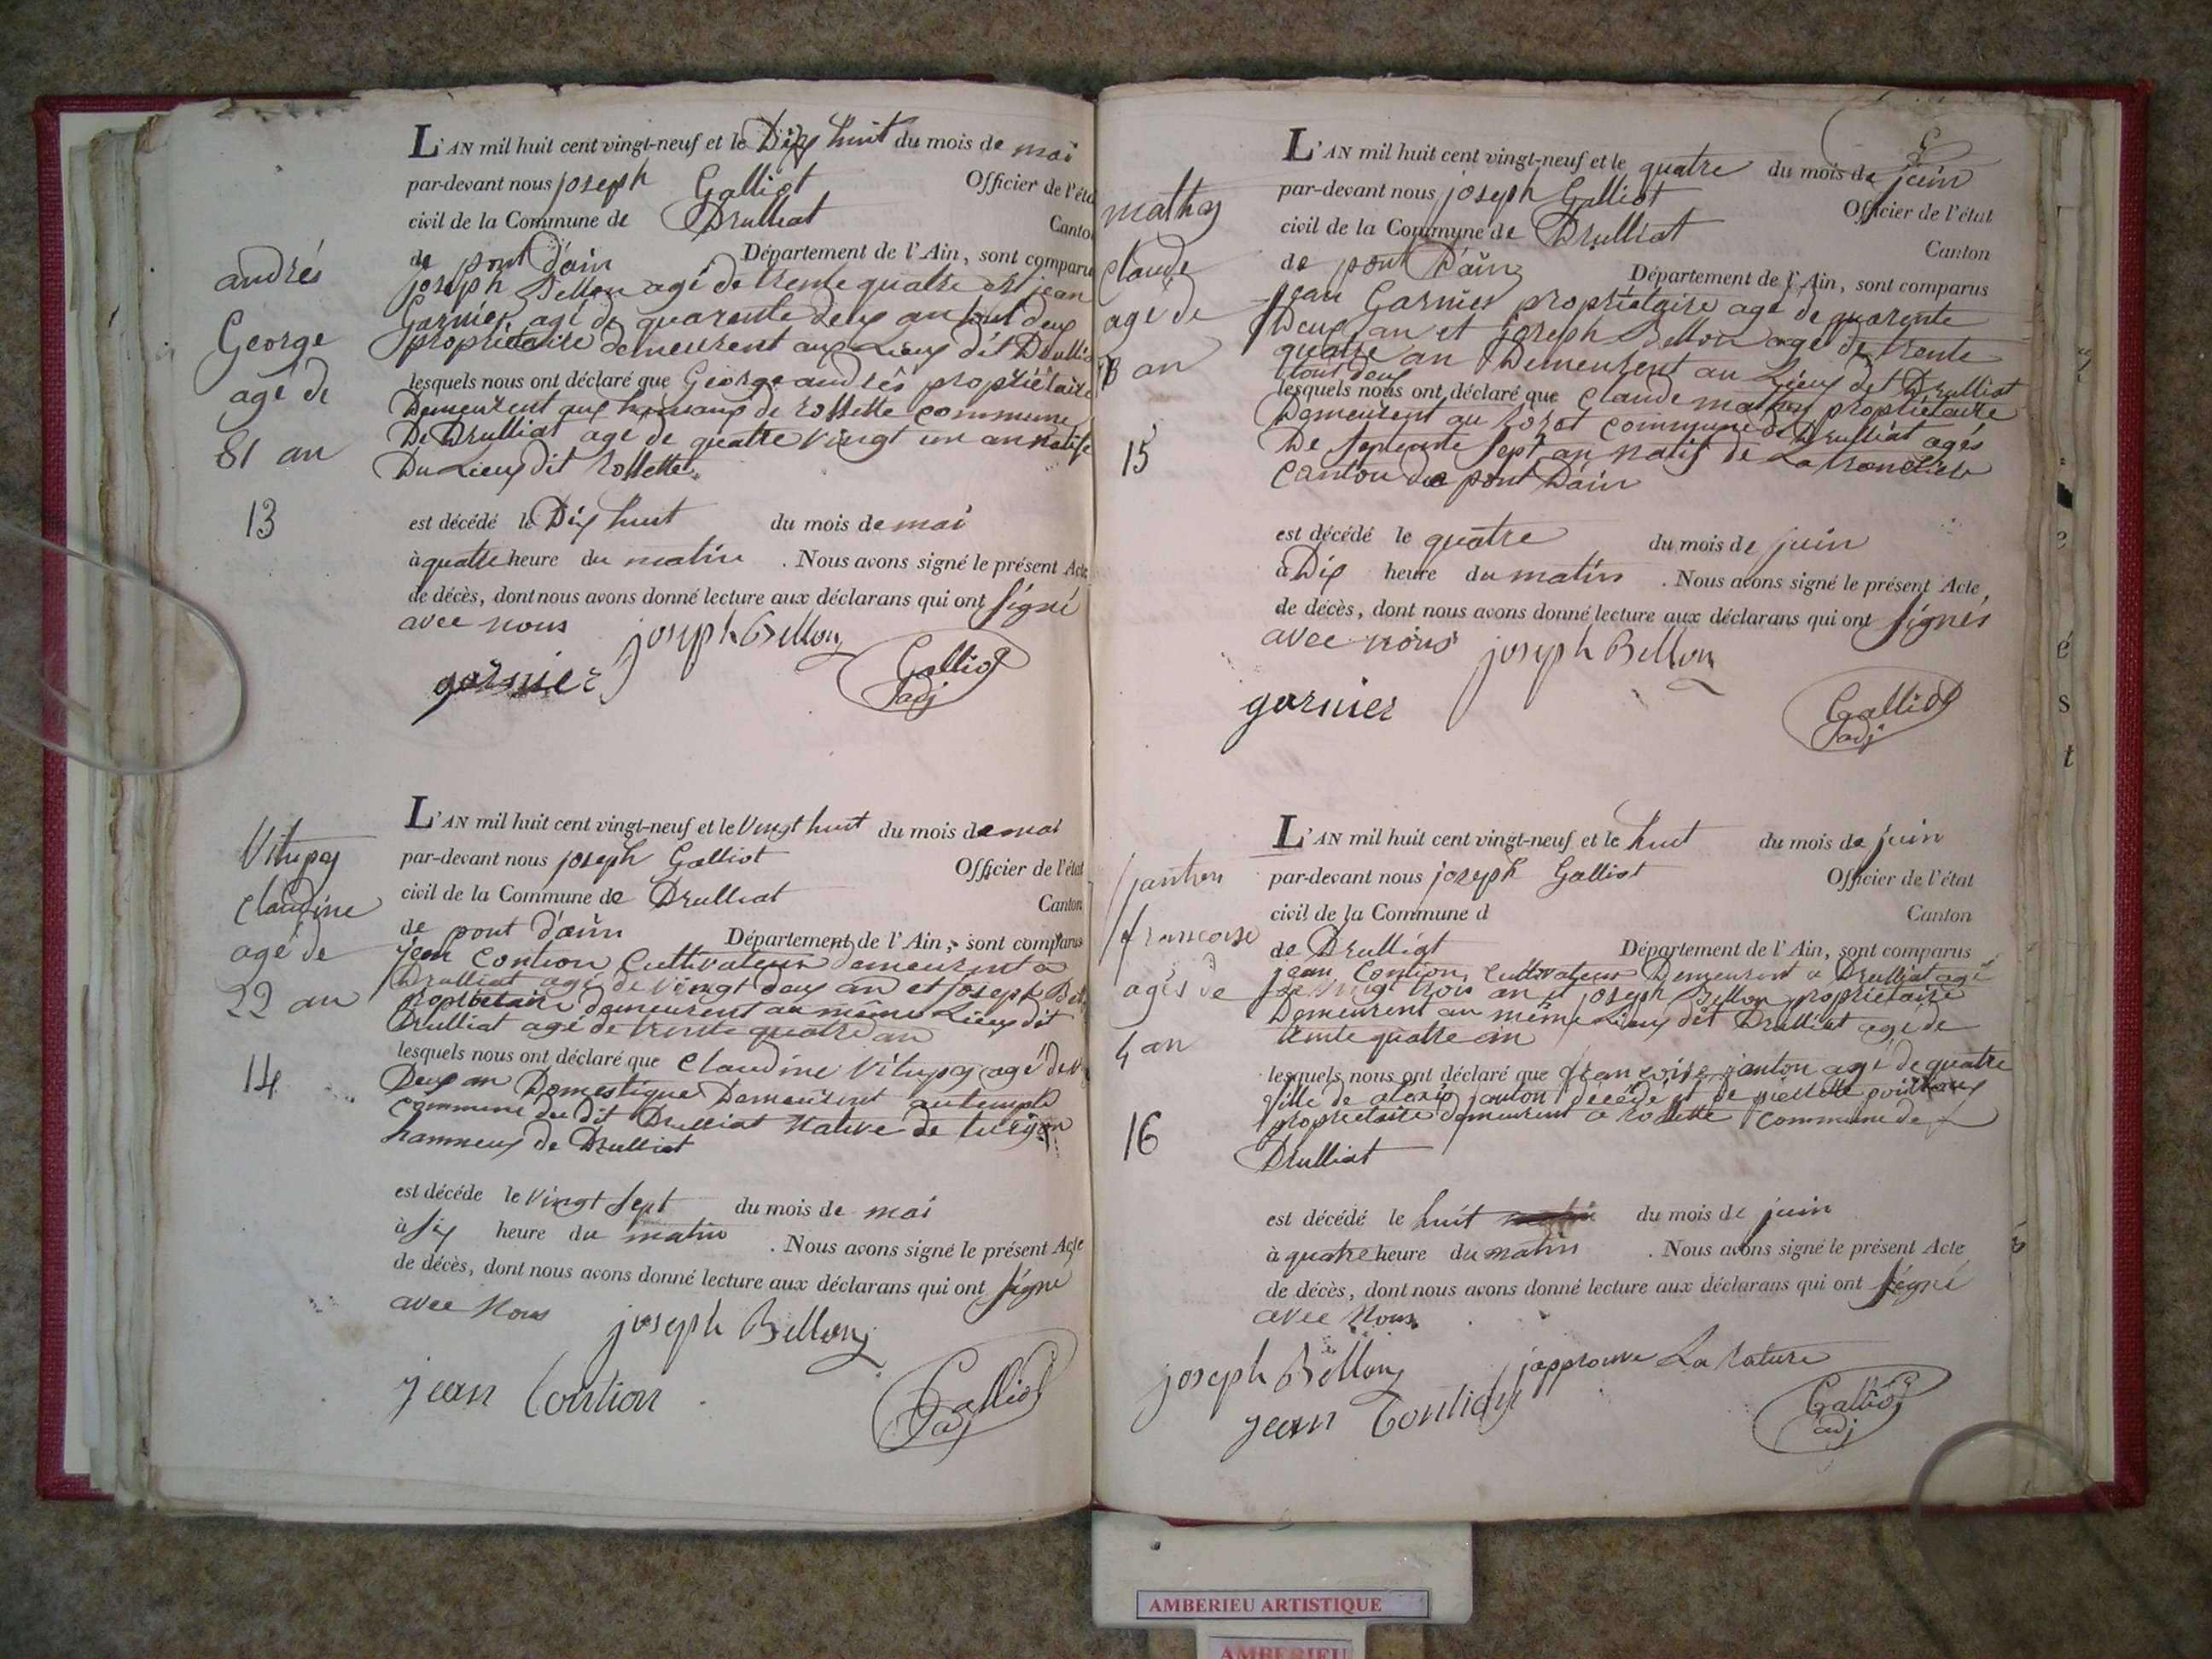 andrés
George
agé de
81 an
13
L'AN mil huit cent vingt-neuf et le Dix huit du mois de mai
par-devant nous joseph Galliot Officier de l'éta
civil de la Commune de Drulliat Canton
de pont d'ain Département de l'Ain, sont comparu
joseph Bellon agé de trente quatre an jean
Garnier agé de quarente deux an tout deux
propriétaire demeurent aux Lieux dit Drullia
lesquels nous ont déclaré que George andrés propriétaire
Demeurent aux hameaux de rossette commune
De Drulliat agé de quatre vingt un an natife
Du Lieux dit rossette
est décédé le Dix huit du mois de mai
à quatre heure du matin . Nous avons signé le présent Acte
de décès, dont nous avons donné lecture aux déclarans qui ont signé
avec nous joseph Bellon
garnier Galliot
adj
Vitupey
claudine
agé de
22 an
14
L'AN mil huit cent vingt-neuf et le Vingt huit du mois de mai
par-devant nous joseph Galliot Officier de l'état
civil de la Commune de Drulliat Canton
de pont d'ain Département de l'Ain, sont comparus
jean Contion Cultivateur demeurent a
Drulliat agé de vingt deux an et joseph Bel
propriétaire demeurent au même Lieux dit
Drulliat agé de trente quatre an
lesquels nous ont déclaré que Claudine Vitupey agé de v
Deux an Domestique Demeurent au temple
commune du dit Drulliat Native de
hammeux de Drulliat
est décéde le vingt sept du mois de mai
à six heure du matin . Nous avons signé le présent Acte
de décès, dont nous avons donné lecture aux déclarans qui ont signé
avec Nous joseph Bellon
jean Contion Galliot
adj
mathey
claude
agé de
an
15
L'AN mil huit cent vingt-neuf et le quatre du mois de juin
par-devant nous joseph Galliot Officier de l'état
civil de la Commune de Drulliat Canton
de pont D'ain Département de l'Ain, sont comparus
jean Garnier propriétaire agé de quarente
Deux an et joseph Bellon agé de trente
quatre an Demeurent au Lieux dit Drulliat
tout deux
lesquels nous ont déclaré que Claude mathey propriétaire
Demeurent au rozet commune de Drulliat agés
De septente sept an natif de La tranclière
canton de pont D'ain
est décédé le quatre du mois de juin
à Dix heure du matin . Nous avons signé le présent Acte,
de décès, dont nous avons donné lecture aux déclarans qui ont signés
avec nous joseph Bellon
garnier Galliot
adj
janton
francoise
agés de
4 an
16
L'AN mil huit cent vingt-neuf et le huit du mois de juin
par-devant nous joseph Galliot Officier de l'état
civil de la Commune d Canton
de Drulliat Département de l'Ain, sont comparus
jean Contion, Cultivateur Demeurent a Drulliat agé
de vingt trois an et joseph Bellon propriétaire
Demeurent au même Lieux dit Drulliat agé de
trente quatre an
lesquels nous ont déclaré que francoise janton agé de quatre
fille de alexis janton décédé et de pierrette
propriétaire demeurent a rossette commune de
Drulliat
est décédé le huit du mois de juin
à quatre heure du matin . Nous avons signé le présent Acte
de décès, dont nous avons donné lecture aux déclarans qui ont signé
avec Nous
joseph Bellon japprouve La rature
jean Contion Galliot
adj
AMBERIEU ARTISTIQUE
AMBERIEU